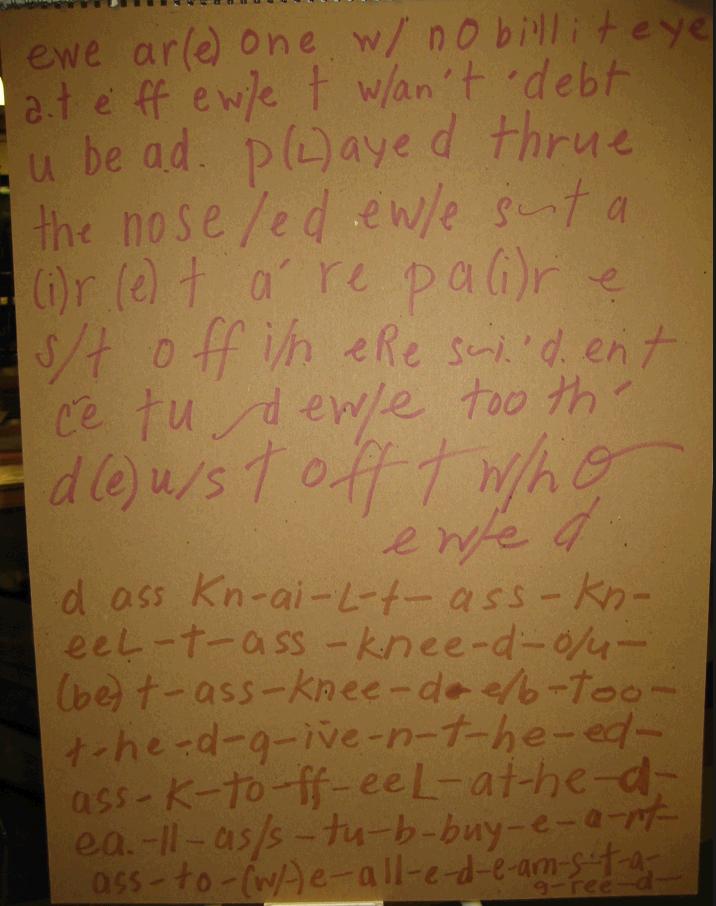 ewe ar(e) one w/ nobilliteye
a.t e ff ew/e t w/an't 'debt
u be ad. p(L)aye d thrue
the nose/ed ew/e s~t a
(i)r (e) t a' re pa(i)r e
s/t off i/n eRe s~i.'d. ent
ce tu d ew/e too th'
d(e)u/s t off t w/ho
ew/e d
d ass Kn-ai-L-t-ass-Kn-
eeL-t-ass-knee-d-o/u-
(be) t-ass-knee-d-e/b-too-
t-he-d-g-ive-n-t-he-ed-
ass-K-to-ff-eeL-at-he-d-
ea.-ll-as/s-tu-b-buy-e-a-rt-
ass-to-(w/)e-all-e-d-e-am-s-t-a-
g-ree-d-